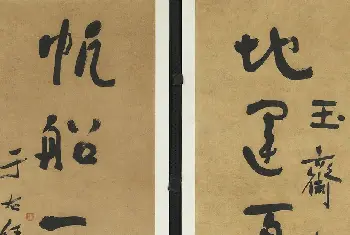 地運百
玉齋
帆船一
于右任